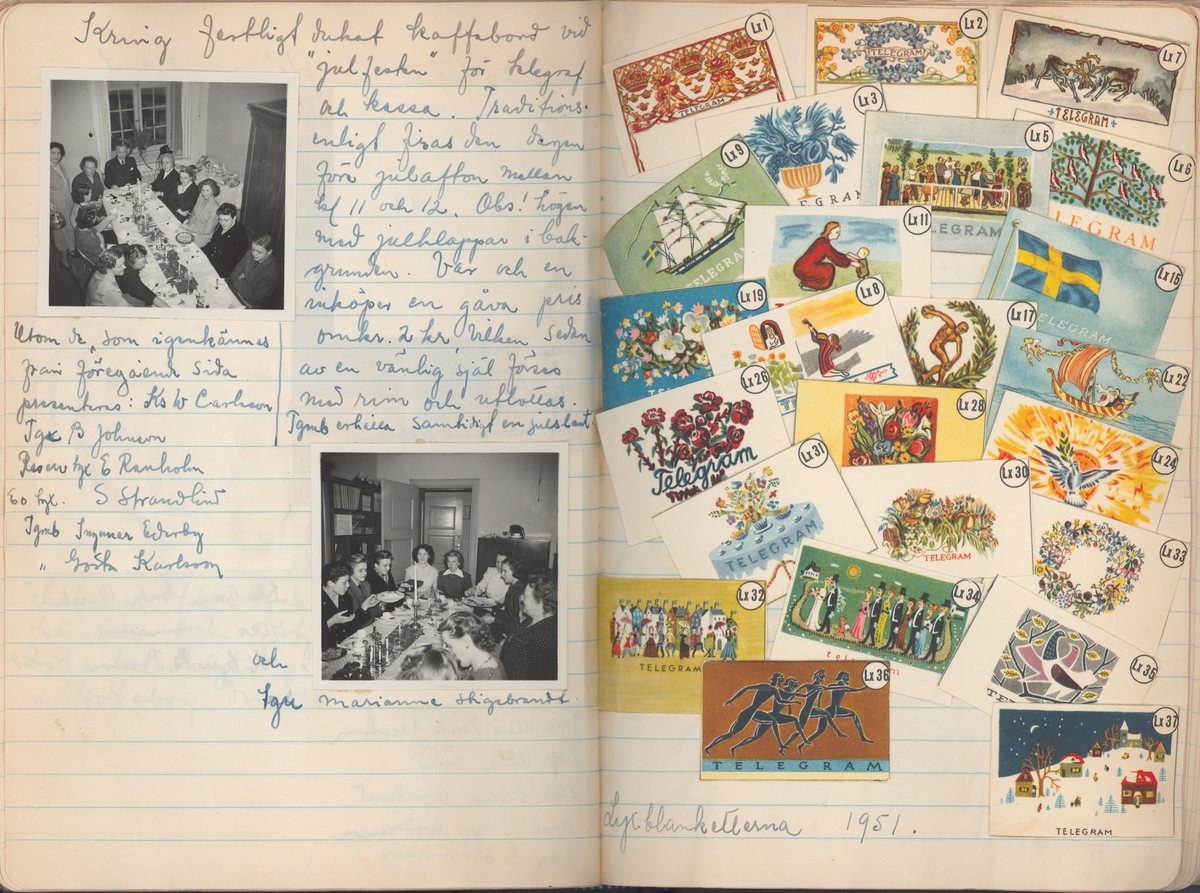 Kring festligt dukat kaffebord vid
"julfesten" för telegraf
och kassa. Traditions-
enligt firas den dagen
före julafton mellan
kl 11 och 12. Obs! högen
med julklappar i bak-
grunden. Var och en
inköper en gåva pris
omkr. 2 kr, vilken sedan
av en vänlig själ förses
med rim och utlottas.
Tgmb erhålla samtidigt en julslant.
Utom de, som igenkännas
från föregående sida
presenteras: Ks W Carlsson
Tgx B Johnson
Reserv tgx E Ranholm
Eo tgx. S Strandlind
Tgmb Ingmar Ederby
" Gösta Karlsson
och
Tgx Marianne Stigebrandt.
Lx 1
TELEGRAM
Lx 2
TELEGRAM
Lx 7
TELEGRAM
Lx 3
TELEGRAM
Lx 5
TELEGRAM
Lx 6
TELEGRAM
Lx 9
TELEGRAM
Lx 11
Lx 15
TELEGRAM
Lx 19
Lx 8
Lx 17
Lx 22
Lx 26
Telegram
Lx 28
Lx 24
Lx 31
TELEGRAM
Lx 30
TELEGRAM
Lx 33
Lx 32
TELEGRAM
Lx 34
telegram
Lx 35
Lx 36
TELEGRAM
Lx 37
TELEGRAM
Lyxblanketterna 1951.